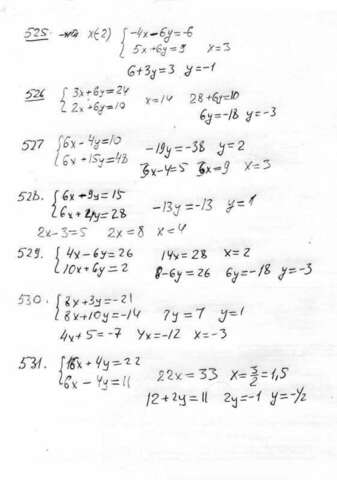 525. x(-2) { -4x-6y=-6
5x+6y=9 x=3
6+3y=3 y=-1
526 { 3x+6y=24
2x+6y=10 x=14 28+6y=10
6y=-18 y=-3
527 { 6x-4y=10 -19y=-38 y=2
6x+15y=48 3x-4=5 3x=9 x=3
528. { 6x-9y=15
6x+4y=28 -13y=-13 y=1
2x-3=5 2x=8 x=4
529. { 4x-6y=26 14x=28 x=2
10x+6y=2 8-6y=26 6y=-18 y=-3
530. { 8x+3y=-21
8x+10y=-14 7y=7 y=1
4x+5=-7 4x=-12 x=-3
531. { 16x+4y=22
6x-4y=11 22x=33 x=3/2=1,5
12+2y=11 2y=-1 y=-1/2